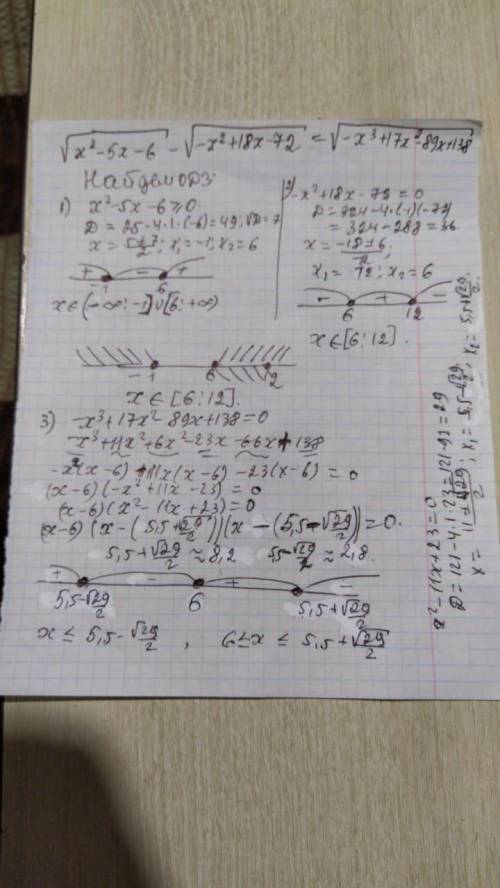 √(x²-5x-6) - √(-x²+18x-72) = √(-x³+17x²-89x+138)
Найдем ОДЗ:
1) x²-5x-6≥0.
D = 25-4·1·(-6)=49; √D=7
x = (5±7)/2; x₁=-1; x₂=6
+ - +
-1 6
x∈(-∞;-1]∪[6;+∞)
2) -x²+18x-72=0
D=324-4·(-1)(-72)
=324-288=36.
x=(-18±6)/-2;
x₁=12; x₂=6
- + -
6 12
x∈[6;12].
-1 6 12
x∈[6;12].
3) -x³+17x²-89x+138=0
-x³+11x²+6x²-23x-66x+138
-x²(x-6)+11x(x-6)-23(x-6)=0
(x-6)(-x²+11x-23)=0
(x-6)(x²-11x+23)=0
(x-6)(x-(5,5+√29/2))(x-(5,5-√29/2))=0.
5,5+√29/2≈8,2 5,5-√29/2≈2,8.
+ - + -
5,5-√29/2 6 5,5+√29/2
x≤5,5-√29/2, 6≤x≤5,5+√29/2
x²-11x+23=0
D=121-4·1·23=121-92=29
x=(11±√29)/2; x₁=5,5-√29/2; x₂=5,5+√29/2